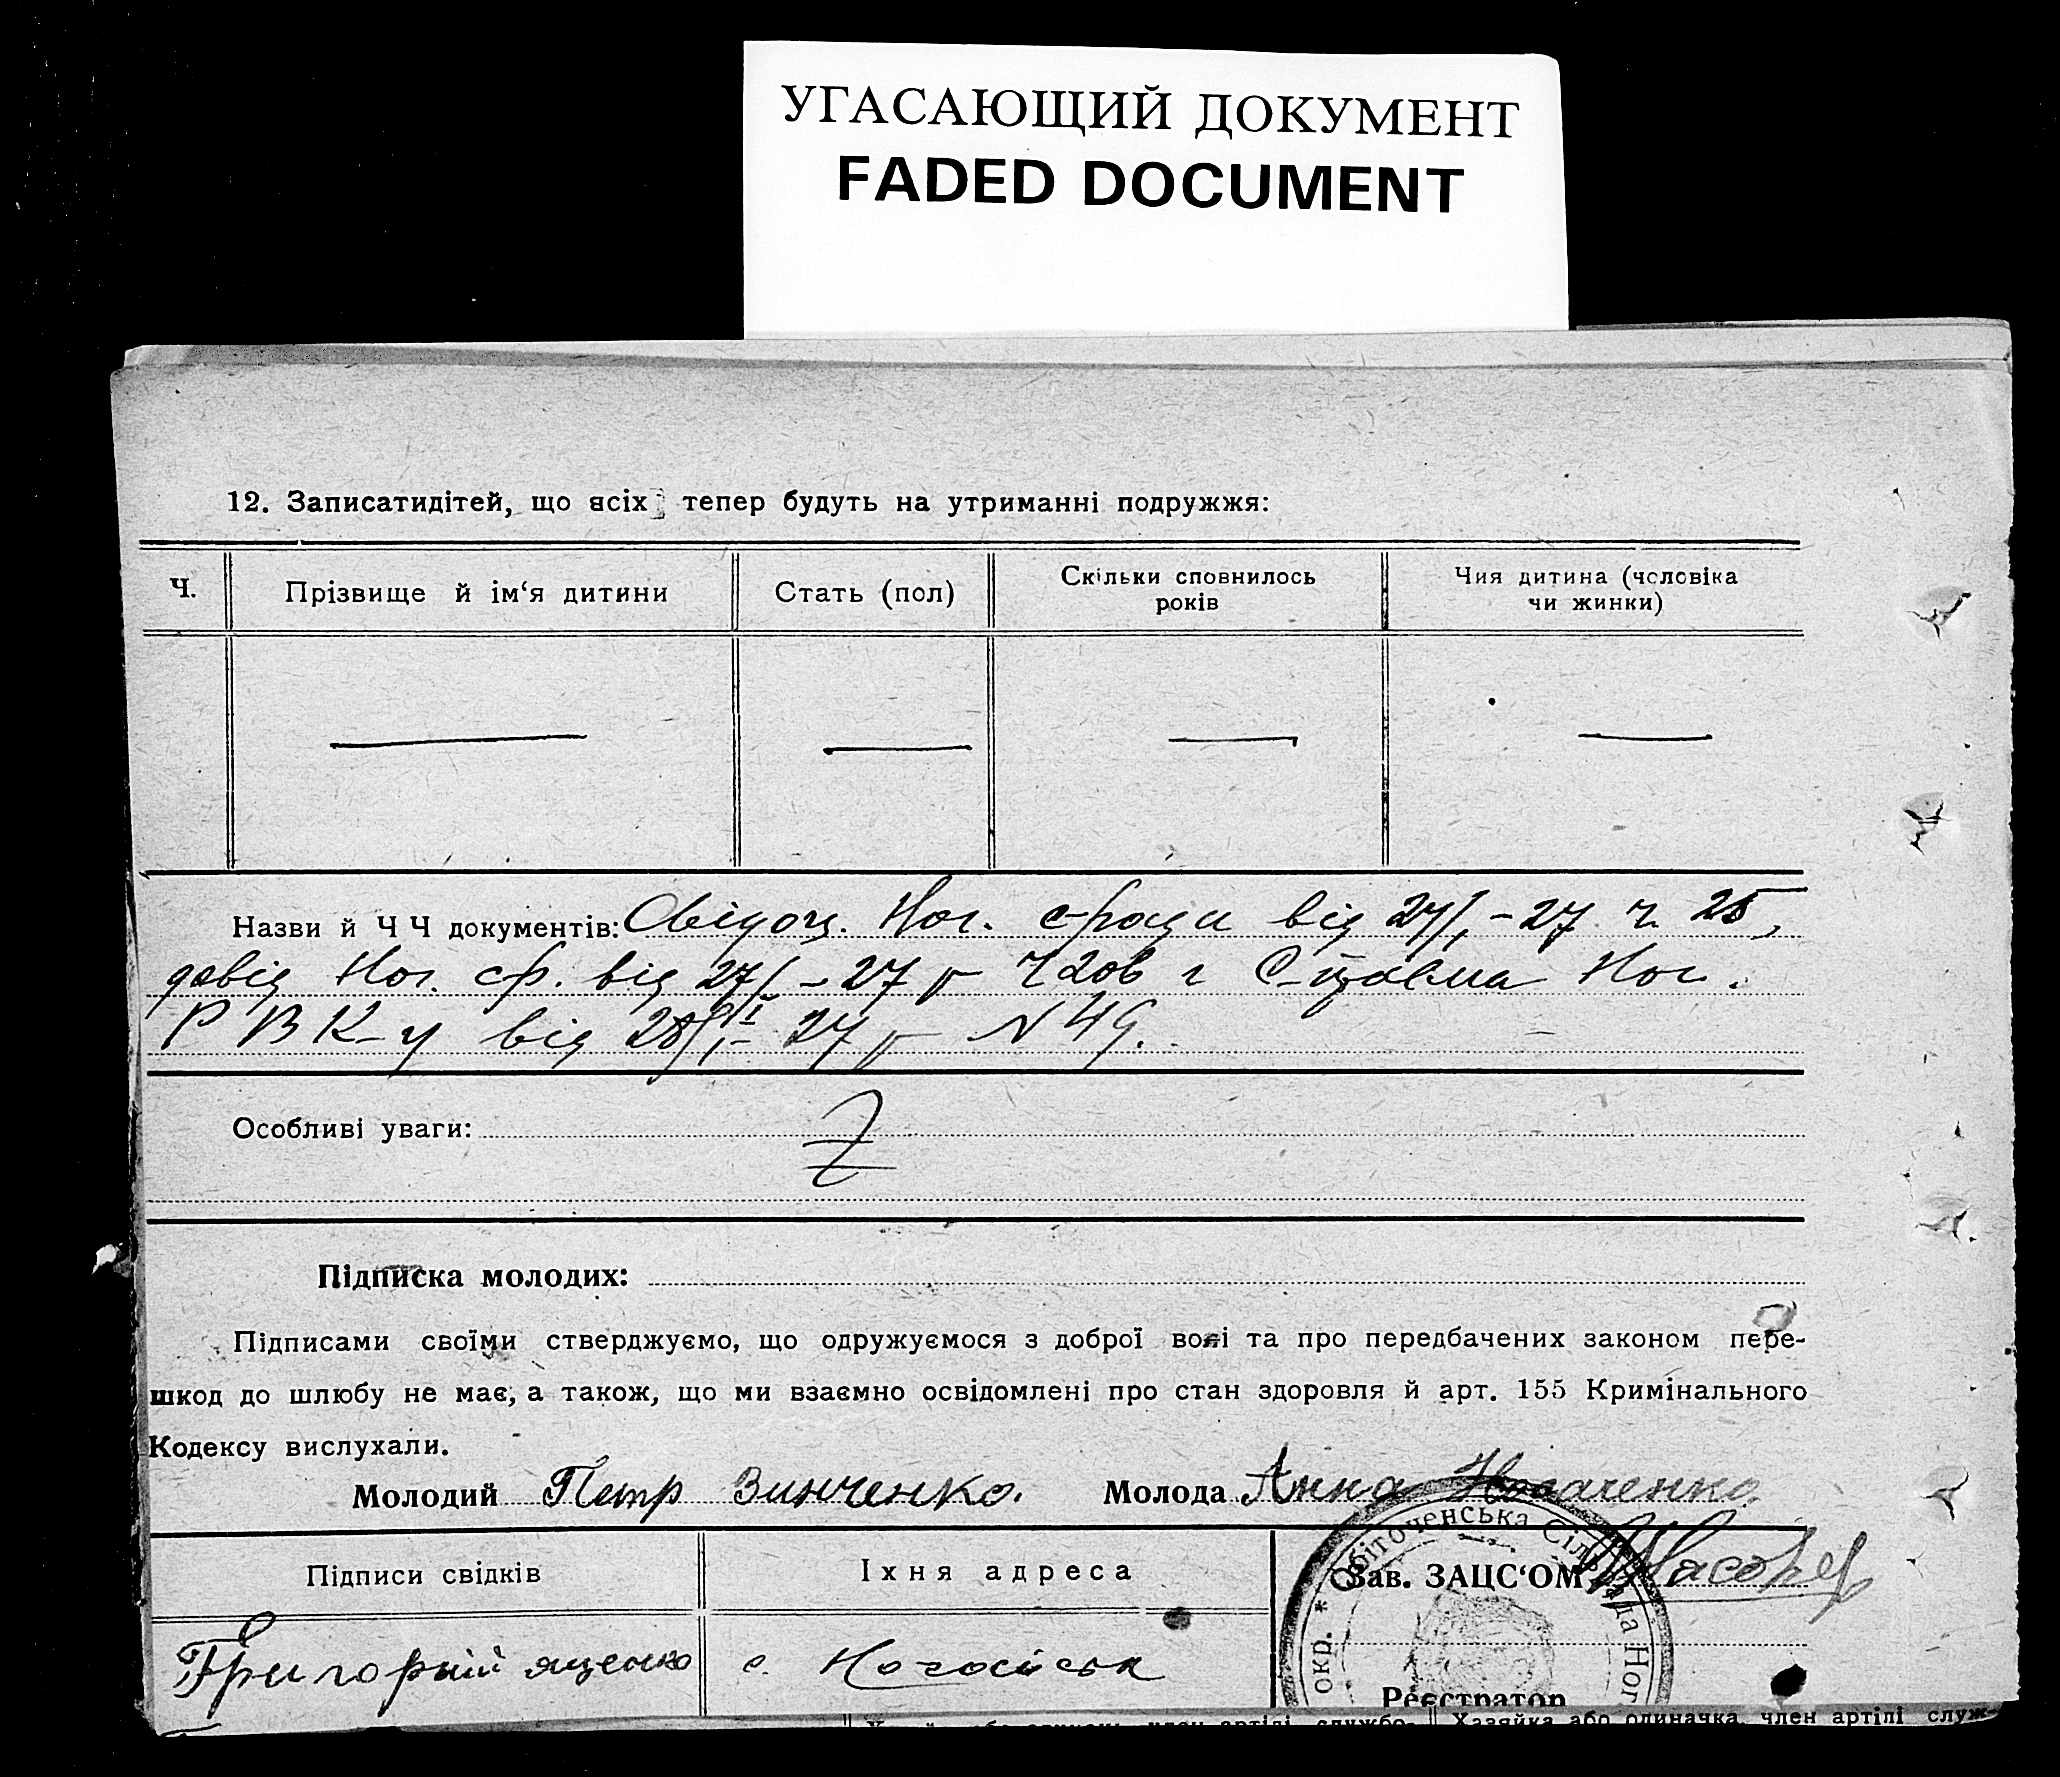 УГАСАЮЩИЙ ДОКУМЕНТ
FADED DOCUMENT
12. Записатидітей, що всіх тепер будуть на утриманні подружжя:
Ч.
Прізвище й ім‘я дитини
Стать (пол)
Скільки сповнилось
років
Чия дитина (чоловіка
чи жинки)
Назви й Ч Ч документів: Свідоц. Ног. с-ради від 27/I-27 ч. 25,
довід Ног. ср. від 27/I-27 р Ног.
Р В К-у від 27 р N 49.
Особливі уваги:
Підписка молодих:
Підписами своїми стверджуємо, що одружуємося з доброї волі та про передбачених законом пере-
шкод до шлюбу не має, а також, що ми взаємно освідомлені про стан здоровля й арт. 155 Кримінального
Кодексу вислухали.
Молодий Петр Зинченко. Молода Анна Носаченко
Підписи свідків
Їхня адреса
Зав. ЗАЦС‘ОМ
Григорий яценко
с. Ногосівськ
Реєстратор
окр. * Обіточенська Сільрада Ног
член артілі службо-
Хазяйка або одиначка, член артілі служ-